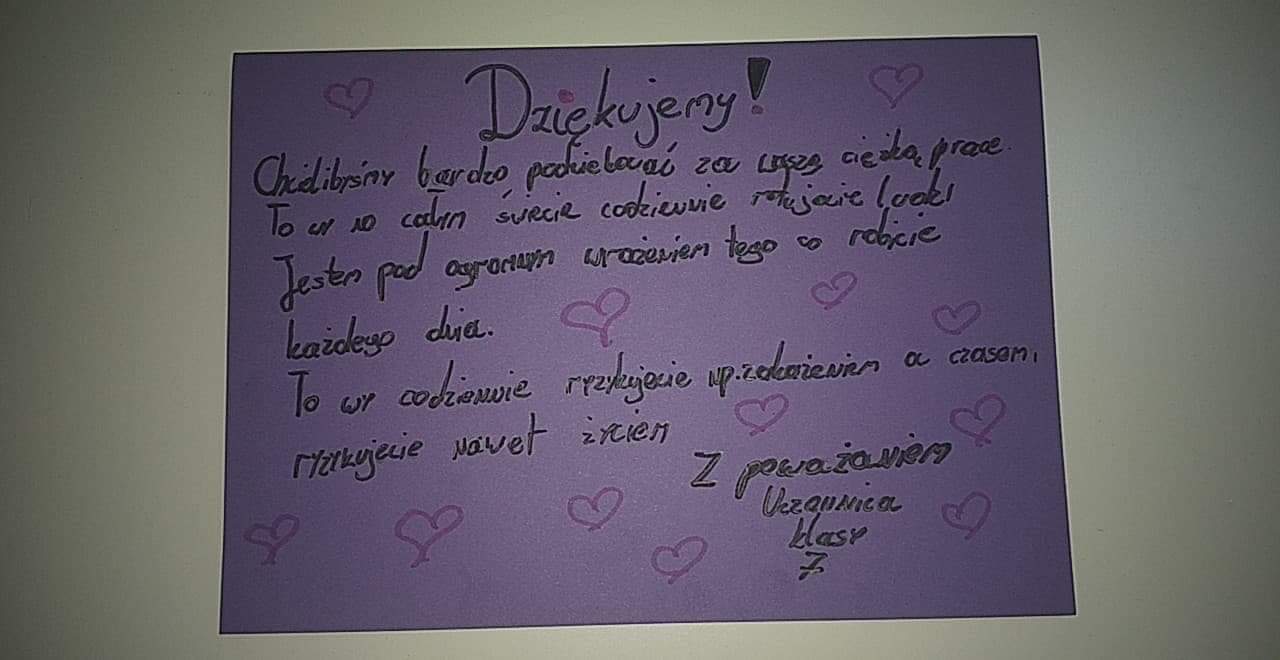 Dziękujemy!
Chcielibyśmy bardzo podziękować za waszą ciężką pracę.
To wy na całym świecie codziennie ratujecie ludzi
Jestem pod ogromnym wrażeniem tego co robicie
każdego dnia.
To wy codziennie ryzykujecie np. zakażeniem a czasem,
ryzykujecie nawet życiem
Z poważaniem
Uczennica
klasy
7